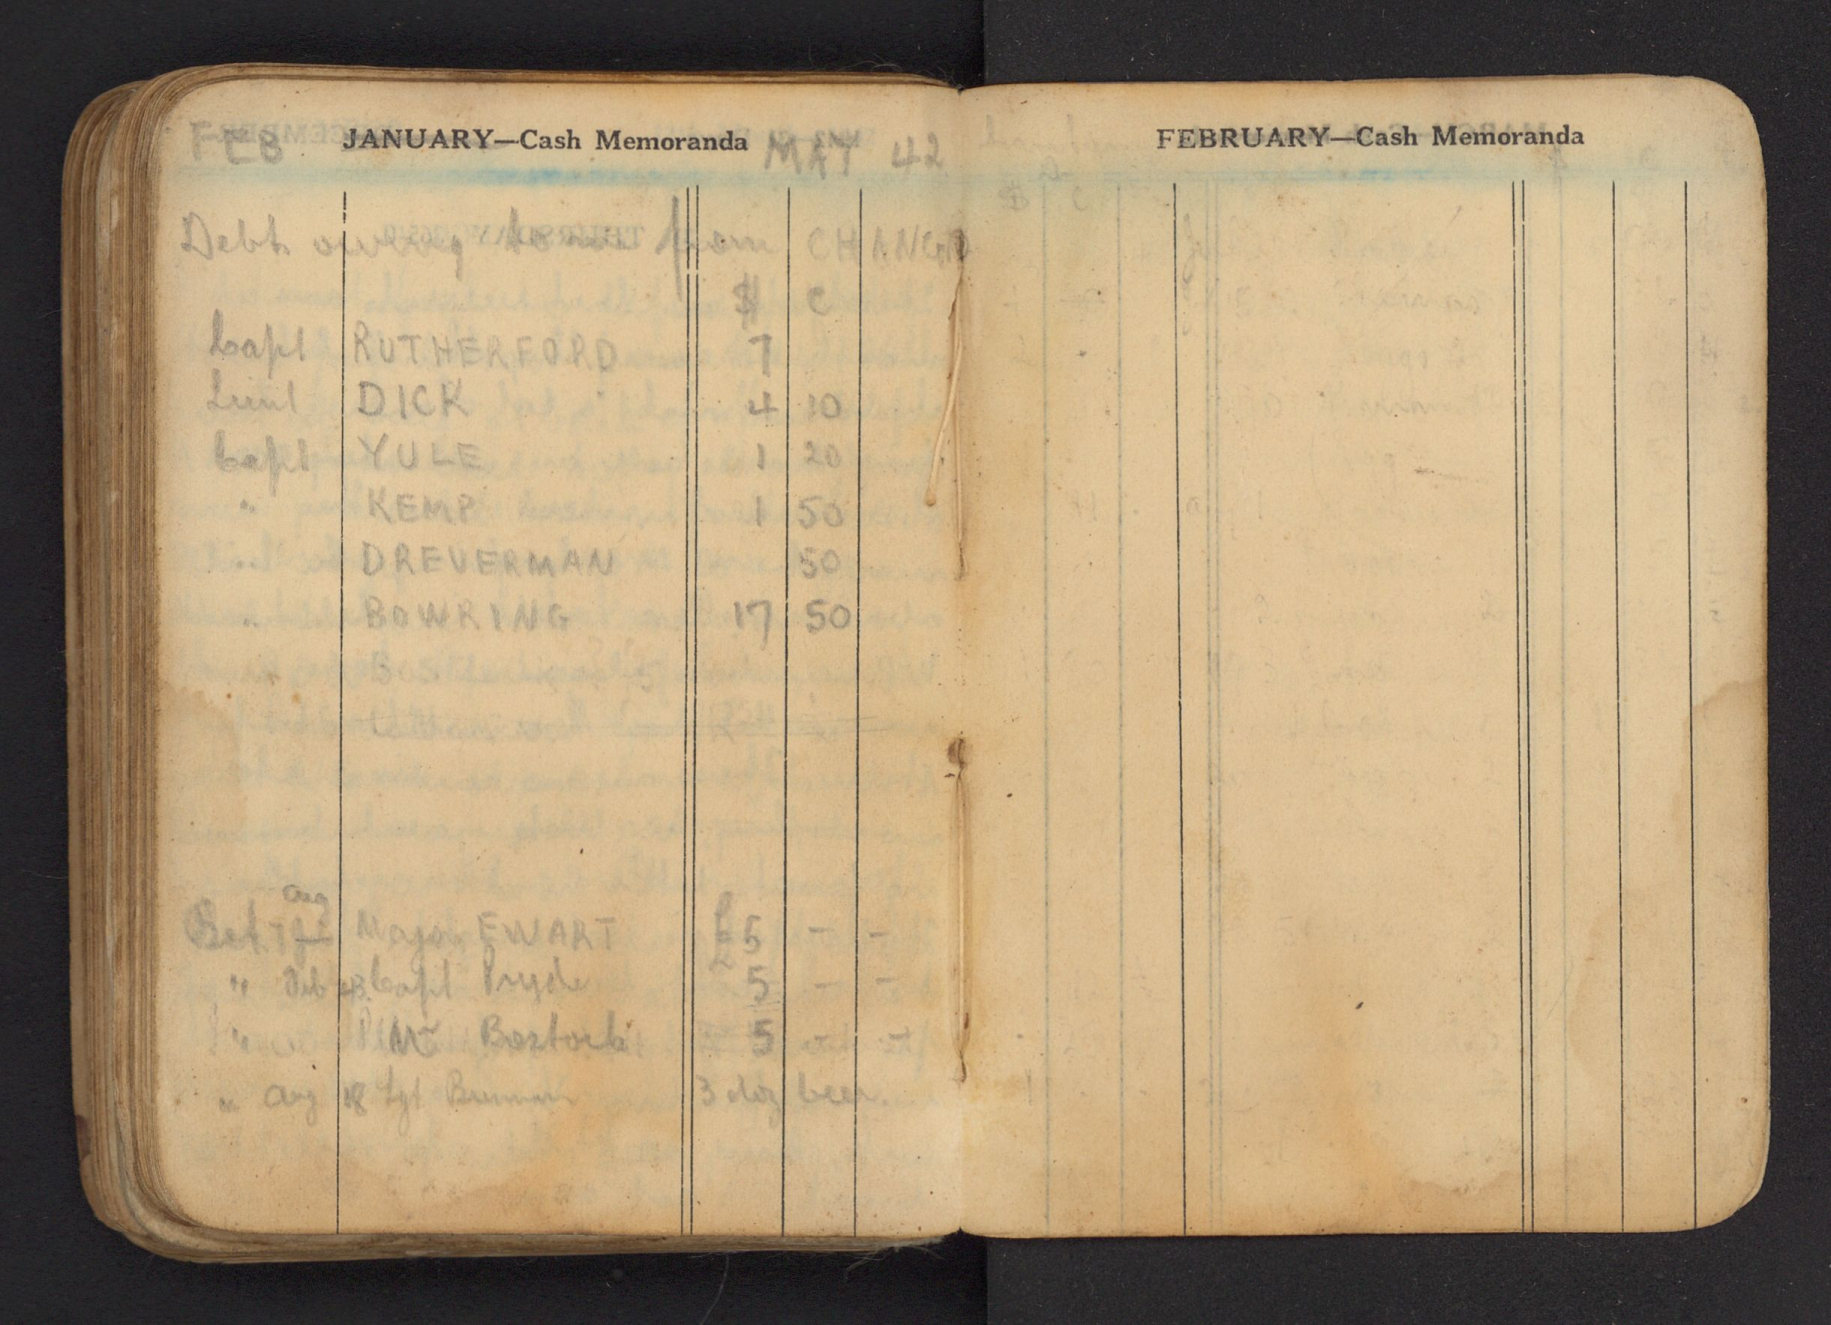 FEB JANUARY—Cash Memoranda MAY 42
Debt owing to me from CHANGI
$ C
Capt RUTHERFORD 7
Lieut DICK 4 10
Capt YULE 1 20
" KEMP 1 50
DREVERMAN 50
" BOWRING 17 50
Aug
Bet Major EWART £5 – –
" Feb 43 Capt Pryde 5 – –
" Mr Bostock 5 – –
" Aug 18 Sgt 3 doz beer.
FEBRUARY—Cash Memoranda